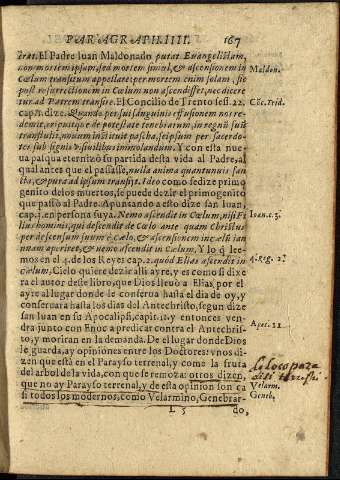 PARAGRAPH. IIII. 167
trat. El Padre Iuan Maldonado putat Euangelistam,
con mortem ipsum, sed mortem simul, & ascensionem in
Cœlum transitum appellare: per mortem enim solam, sic
post resurrectionem in Cœlum non ascendisset, nec dicere
tur ad Patrem transire. El Concilio de Trento sess. 22.
cap. 1. dize. Quando per sui sanguinis effusionem nos re-
demit, eripuitque de potestate tenebrarum, in regnū suū
transtulit, nouum instituit pascha, seipsum per sacerdo-
tes sub signis visibilibus immolandum. Y con esta nue
ua pasqua eternizó su partida desta vida al Padre, al
qual antes que el passasse, nulla anima quantunuis san
cta, & pura ad ipsum transijt. Ideo como se dize primo
genito de los muertos, se puede dezir el primogenito
que passò al Padre. Apuntando a esto dize san Iuan,
cap. 3. en persona suya. Nemo ascendit in Cœlum, nisi Fi
lius hominis, qui descendit de Cœlo ante quam Christus
per descensum suum è Cœlo, & ascensionem in cælū ian
nuam aperiret, & nemo ascendit in Cœlum. Y lo q̃ lee
mos en el 4. de los Reyes cap. 2. quòd Elias ascendit in
cœlum, Cielo quiere dezir alli ayre, y es como si dixe
ra el autor deste libro, que Dios lleuò a Elias, por el
ayre al lugar donde le conserua hasta el dia de oy, y
conseruara hasta los dias del Antechristo, segun dize
san Iuan en su Apocalipsi, capit. 12. y entonces ven
drà junto con Enoc a predicar contra el Antechris-
to, y moriran en la demanda. De el lugar donde Dios
le guarda, ay opiniones entre los Doctores: vnos di
zen que està en el Parayso terrenal, y come la fruta
del arbol de la vida, con que se remoza: otros dizen,
que no ay Parayso terrenal, y de esta opinion son ca
si todos los modernos, como Velarmino, Genebrar-
L 5 do,
Maldon.
Cōc. Trid.
Ioan. c. 3.
4. Reg. 2.
Apoc. 12.
Velarm.
Geneb.